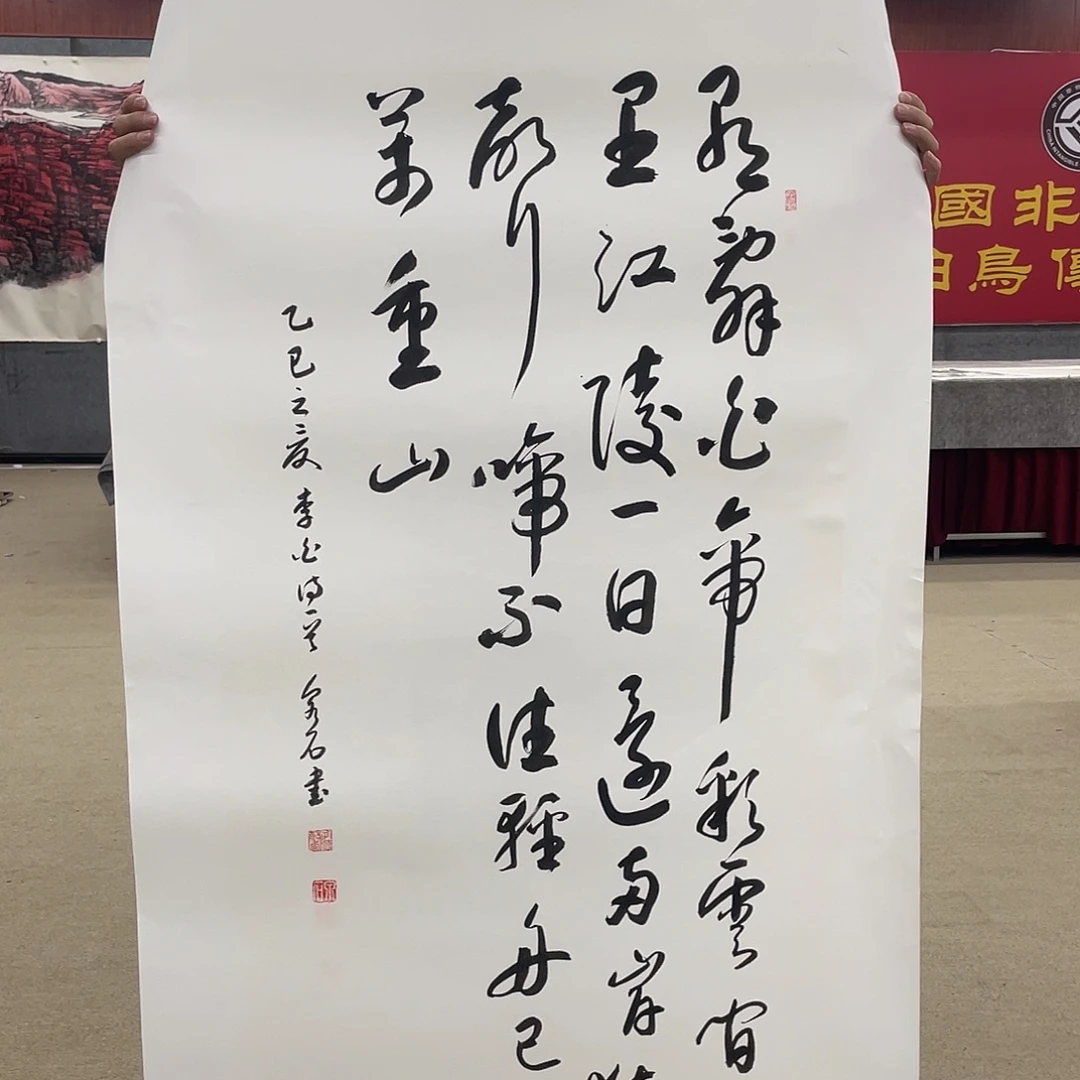 朝辭白帝彩雲間
里江陵一日還兩岸
聲啼不住輕舟已
萬重山
乙巳立夏 李白詩一首 石書
國非
鳥
CHINA INTANGIBLE